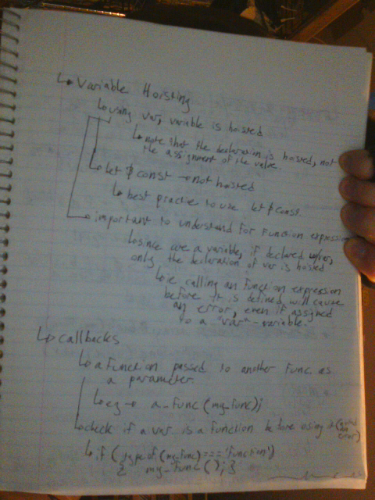 ↳ Variable Hoisting
↳ using var, variable is hoisted
↳ note that the declaration is hoisted, not
the assignment of the value
↳ let & const → not hoisted
↳ best practice to use let & const
↳ important to understand for function expression
↳ since are a variable, if declared
only the declaration of var is hoisted
↳ ie calling an function expression
before it is defined will cause
an error, even if assigned
to a "var" - variable.
↳ callbacks
↳ a function passed to another func as
a parameter
↳ eg → a_func (my_func);
↳ check if a var is a function before using it (avoid
error)
↳ if (typeof (my_func) === 'function')
{ my_func(); }